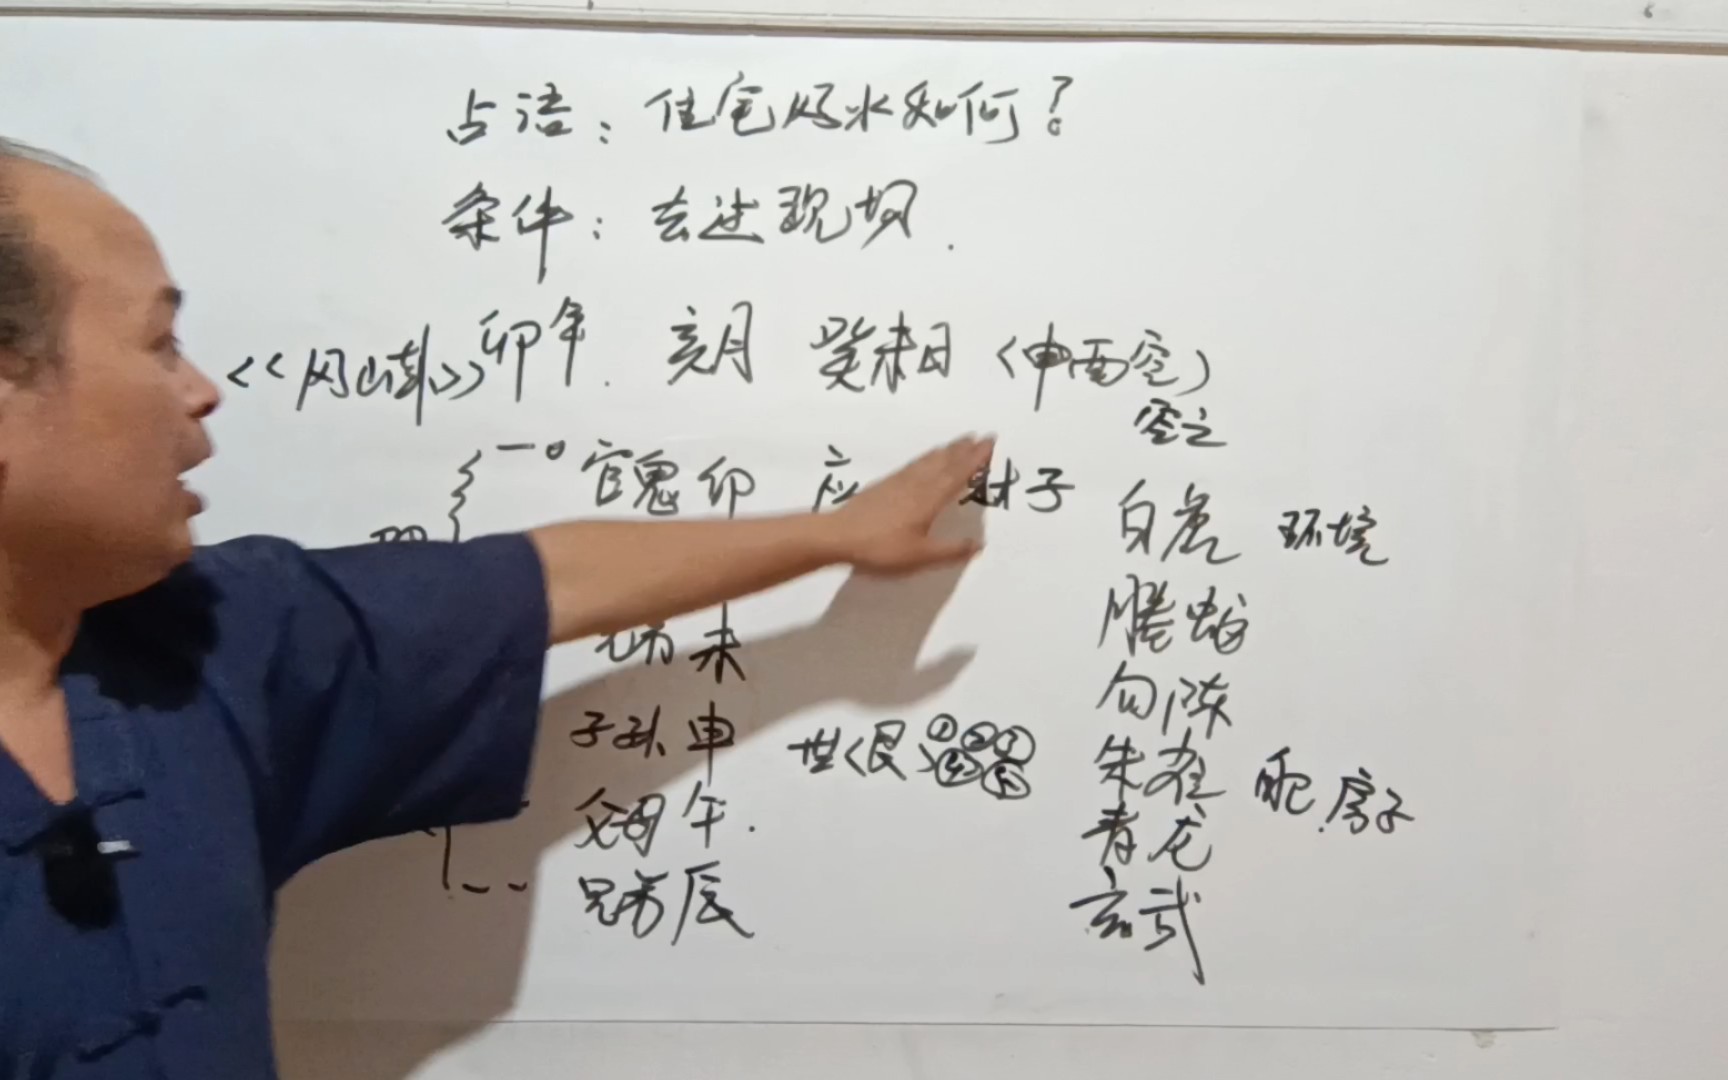 占语：住宅风水如何？
条件：去过现场.
<<风山卦>>卯年. 亥月 癸未日（申酉空）
空亡
一o 官鬼卯 应 财子 白虎 环境
腾蛇
兄弟 未 勾陈
子孙申 世<艮>①②③④⑤ 朱雀 爬.房子
父母午. 青龙
-- 兄弟辰 玄武